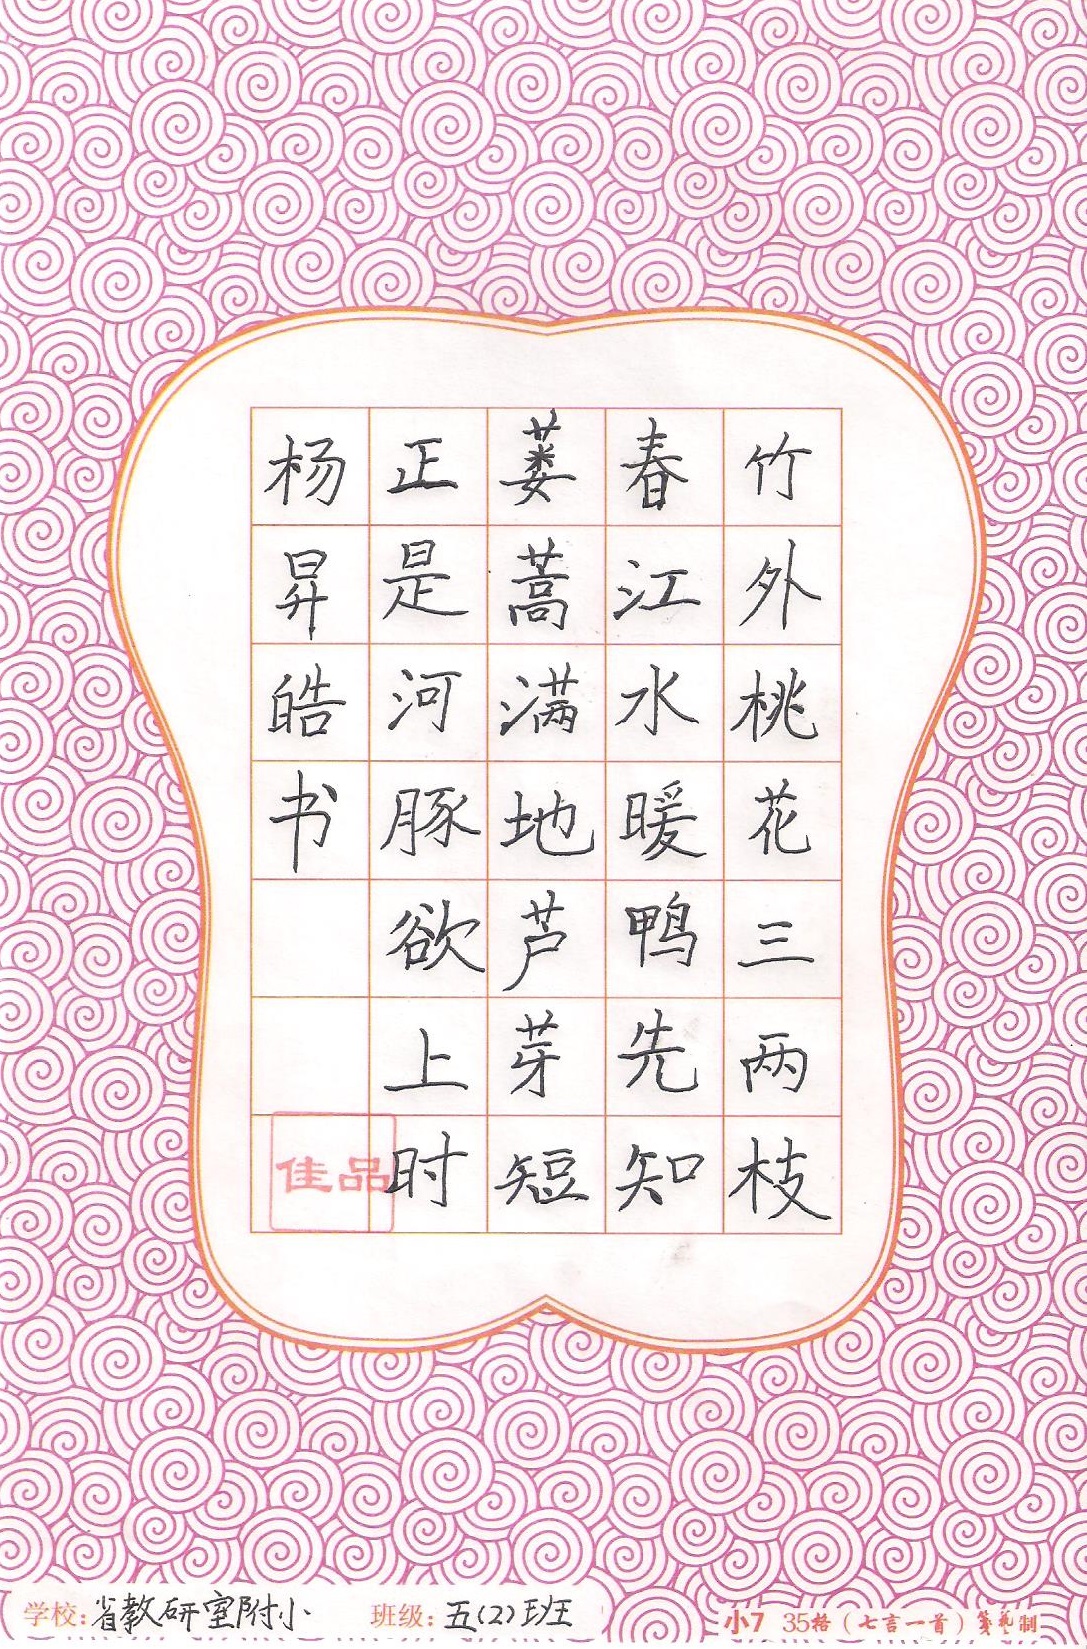 竹外桃花三两枝
春江水暖鸭先知
蒌蒿满地芦芽短
正是河豚欲上时
杨昇皓书
佳品
学校:省教研室附小 班级:五(2)班 小7 35格(七言一首)笺艺制